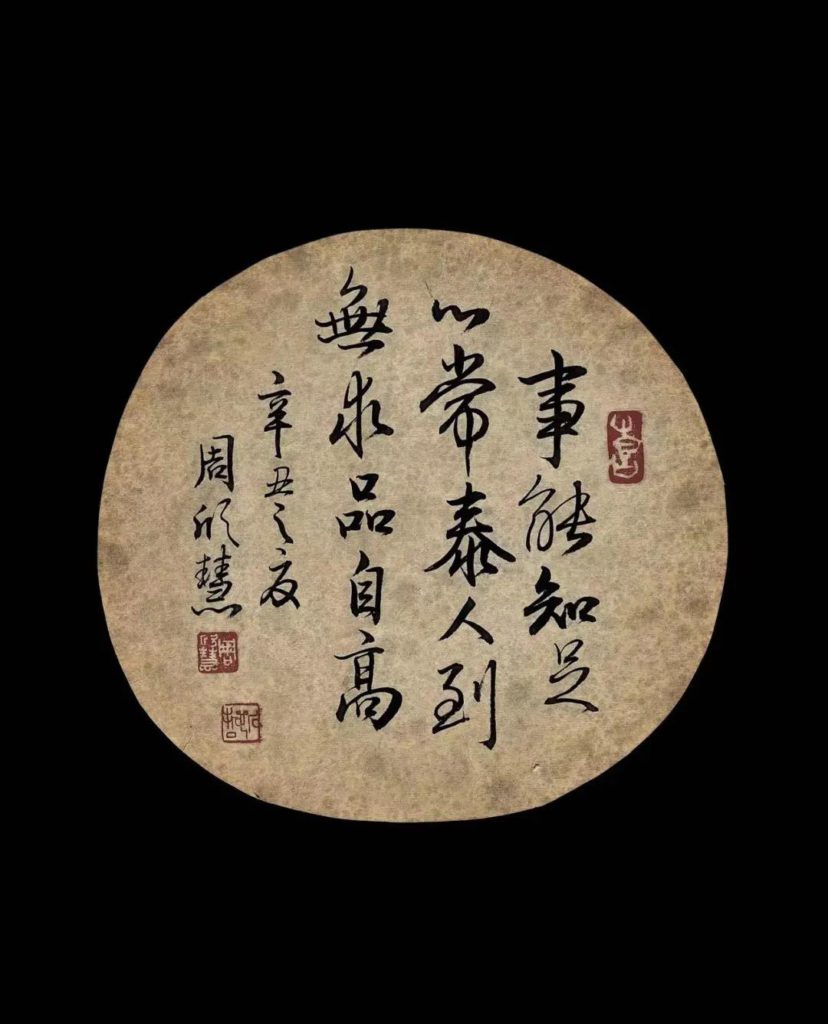 事能知足
心常泰人到
無求品自高
辛丑之夏
周欣慧